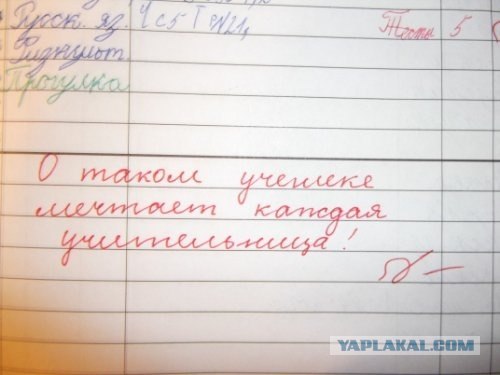 Русск. яз.
Тесты 5
Физкульт.
Прогулка
О таком ученике
мечтает каждая
учительница!
YAPLAKAL.COM